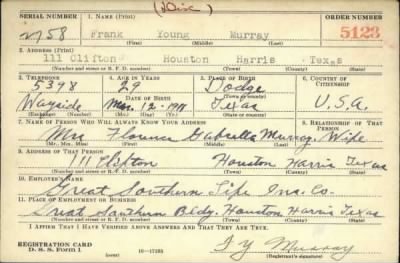 (Disc.)
SERIAL NUMBER 1. NAME (Print) ORDER NUMBER
Frank Young Murray 5123
(First) (Middle) (Last)
2. ADDRESS (Print)
111 Clifton Houston Harris Texas
(Number and street or R. F. D. number) (Town) (County) (State)
3. TELEPHONE 4. AGE IN YEARS 5. PLACE OF BIRTH 6. COUNTRY OF CITIZENSHIP
5398 29 Dodge
DATE OF BIRTH
Wayside Mar. 12-1911 Texas U.S.A.
(Exchange) (Number) (Mo.) (Day) (Yr.) (State or country)
7. NAME OF PERSON WHO WILL ALWAYS KNOW YOUR ADDRESS 8. RELATIONSHIP OF THAT PERSON
Mrs Florence Gabrella Murray, Wife
(Mr., Mrs., Miss) (First) (Middle) (Last)
9. ADDRESS OF THAT PERSON
111 Clifton Houston Harris Texas
(Number and street or R. F. D. number) (Town) (County) (State)
10. EMPLOYER'S NAME
Great Southern Life Ins. Co.
11. PLACE OF EMPLOYMENT OR BUSINESS
Great Southern Bldg. Houston Harris Texas
(Number and street or R. F. D. number) (Town) (County) (State)
I AFFIRM THAT I HAVE VERIFIED ABOVE ANSWERS AND THAT THEY ARE TRUE.
REGISTRATION CARD
D. S. S. Form 1 16—17105 F Y Murray
(Registrant's signature)